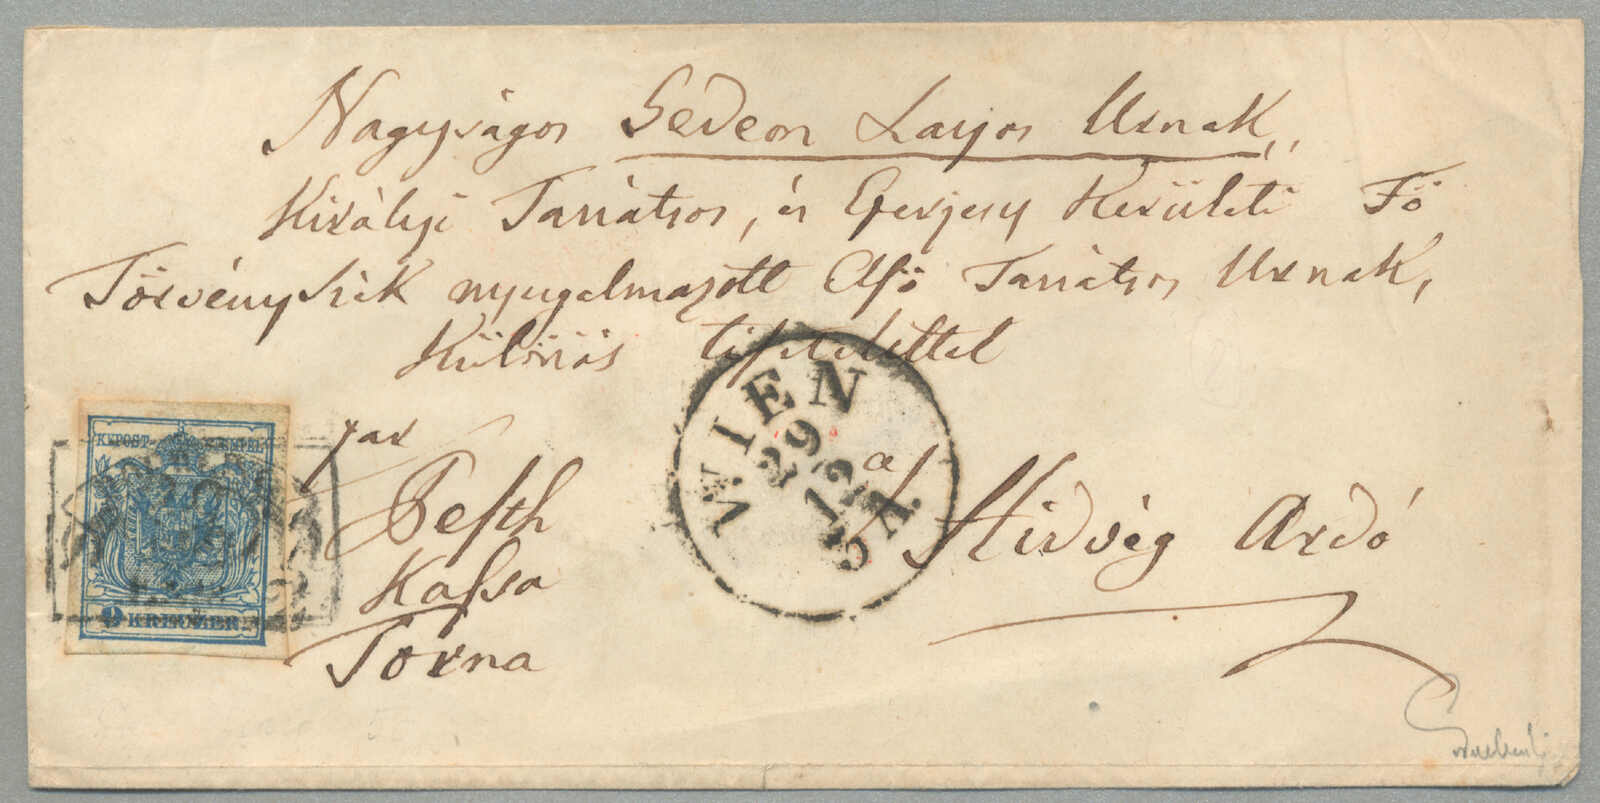 Nagyságos Gedeon Lajos Urnak,
Királyi Tanátsos, és Eperjesy Kerületi Fő
Törvényszék nyugalmazott Alsó Tanátsos Urnak,
Különös tisztelettel
par
Pesth
Kassa
Torna
a
Hidvég Ardó
WIEN
29
12
5 A.
KKPOST-STEMPEL
9 KREUZER